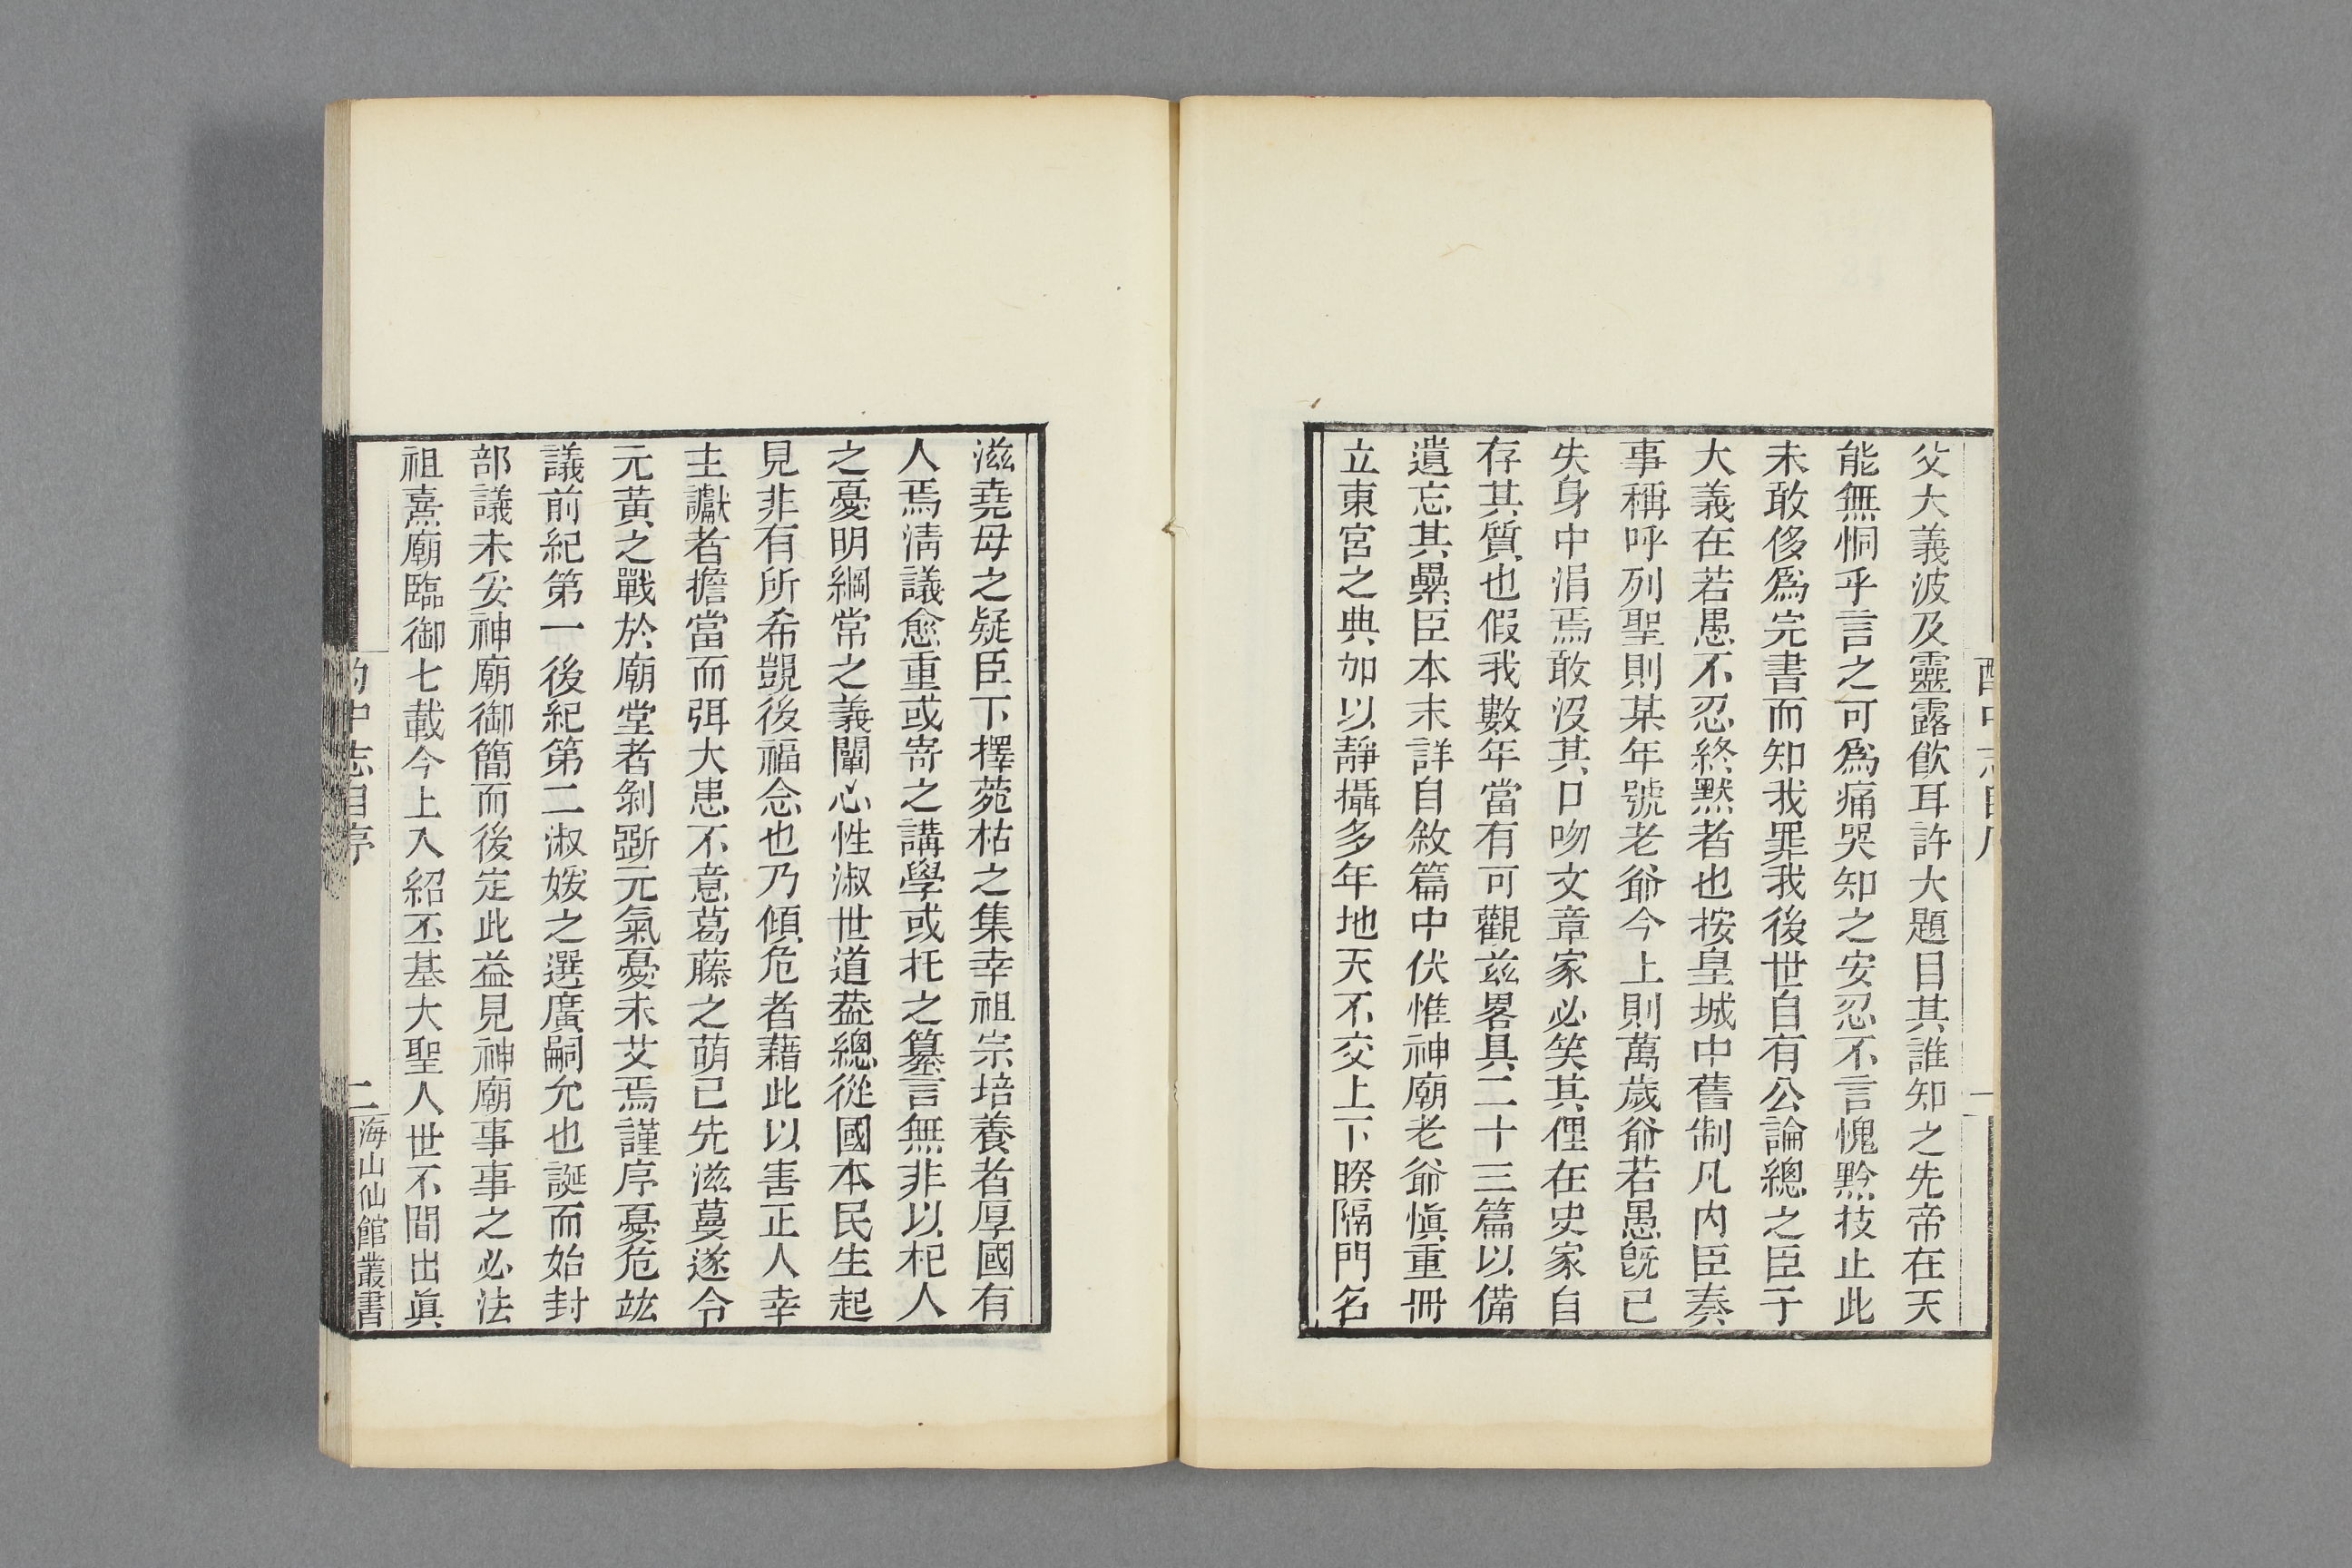 父大義波及靈露飮耳許大題目其誰知之先帝在天
能無恫乎言之可爲痛哭知之安忍不言愧黔技止此
未敢侈爲完書而知我罪我後世自有公論總之臣子
大義在若愚不忍終默者也按皇城中舊制凡内臣奏
事稱呼列聖則某年號老爺今上則萬歲爺若愚旣已
失身中涓焉敢没其口吻文章家必笑其俚在史家自
存其質也假我數年當有可觀兹畧具二十三篇以備
遺忘其纍臣本末詳自敘篇中伏惟神廟老爺愼重冊
立東宮之典加以靜攝多年地天不交上下暌隔門名
滋堯母之疑臣下擇菀枯之集幸祖宗培養者厚國有
人焉淸議愈重或寄之講學或托之纂言無非以杞人
之憂明綱常之義闡心性淑世道葢總從國本民生起
見非有所希覬後福念也乃傾危者藉此以害正人幸
主讞者擔當而弭大患不意葛藤之萌已先滋蔓遂令
元黃之戰於廟堂者剝斲元氣憂未艾焉謹序憂危竑
議前紀第一後紀第二淑媛之選廣嗣允也誕而始封
部議未妥神廟御簡而後定此益見神廟事事之必法
祖熹廟臨御七載今上入紹丕基大聖人世不間出眞
酌中志自序
二
海山仙館叢書